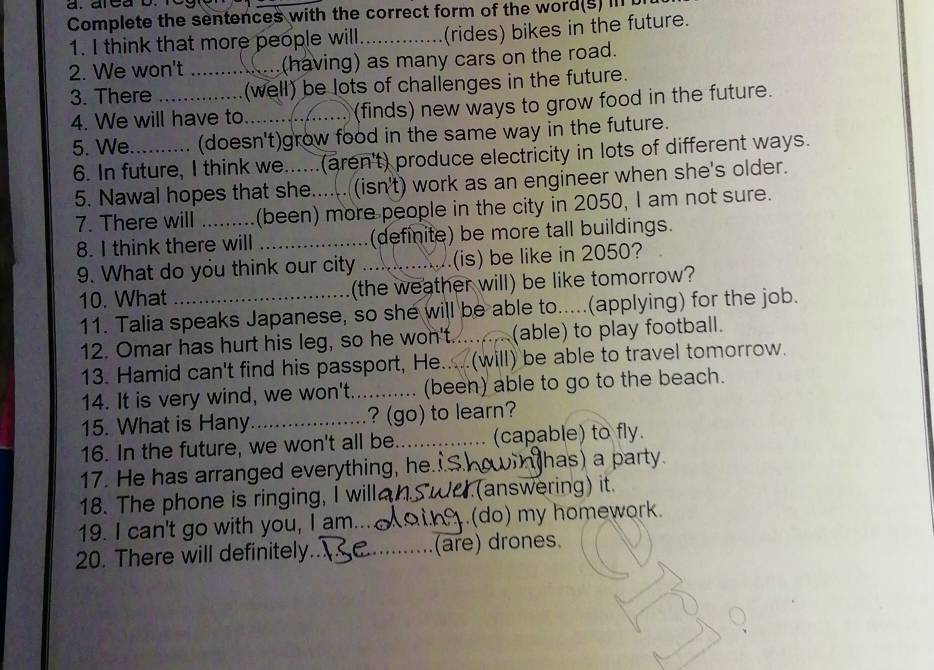 Complete the sentences with the correct form of the word(s) in
1. I think that more people will..............(rides) bikes in the future.
2. We won't ...............(having) as many cars on the road.
3. There ..............(well) be lots of challenges in the future.
4. We will have to.................. (finds) new ways to grow food in the future.
5. We.......... (doesn't)grow food in the same way in the future.
6. In future, I think we......(aren't) produce electricity in lots of different ways.
5. Nawal hopes that she.......(isn't) work as an engineer when she's older.
7. There will .........(been) more people in the city in 2050, I am not sure.
8. I think there will ..................(definite) be more tall buildings.
9. What do you think our city ...............(is) be like in 2050?
10. What .............................(the weather will) be like tomorrow?
11. Talia speaks Japanese, so she will be able to.....(applying) for the job.
12. Omar has hurt his leg, so he won't..........(able) to play football.
13. Hamid can't find his passport, He.....(will) be able to travel tomorrow.
14. It is very wind, we won't........... (been) able to go to the beach.
15. What is Hany...................? (go) to learn?
16. In the future, we won't all be............... (capable) to fly.
17. He has arranged everything, he.is having(has) a party.
18. The phone is ringing, I will answer.(answering) it.
19. I can't go with you, I am...doing.(do) my homework.
20. There will definitely..Be..........(are) drones.